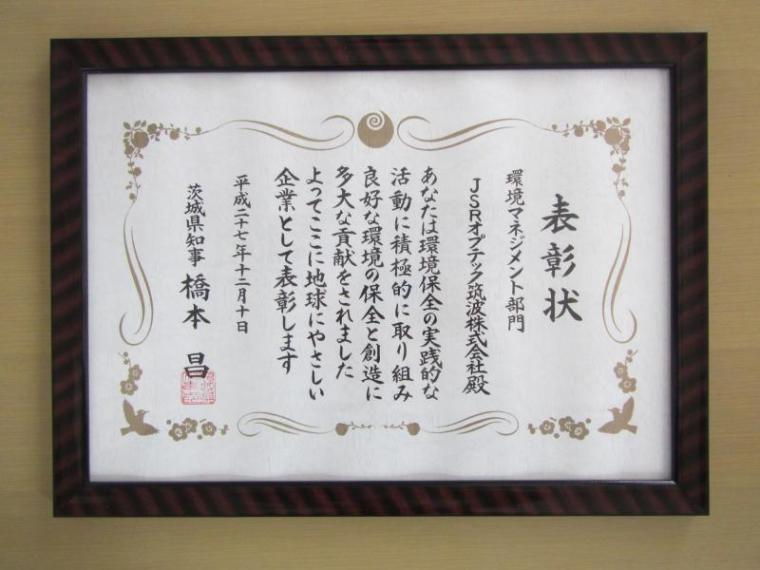 表彰状
環境マネジメント部門
JSRオプテック筑波株式会社殿
あなたは環境保全の実践的な
活動に積極的に取り組み
良好な環境の保全と創造に
多大な貢献をされました
よってここに地球にやさしい
企業として表彰します
平成二十七年十二月十日
茨城県知事 橋本 昌